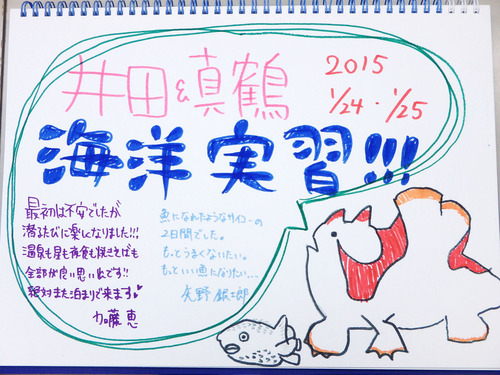 井田&真鶴
2015
1/24・1/25
海洋実習!!!
最初は不安でしたが
潜るたびに楽しくなりました!!!
温泉も星も夜食も焼きそばも
全部が良い思い出です!!
絶対また泊まりで来ます♥
加藤 恵
魚になれたようなサイコーの
2日間でした。
もっとうまくないたい。
もっといい魚になりたい…
矢野 銀士郎